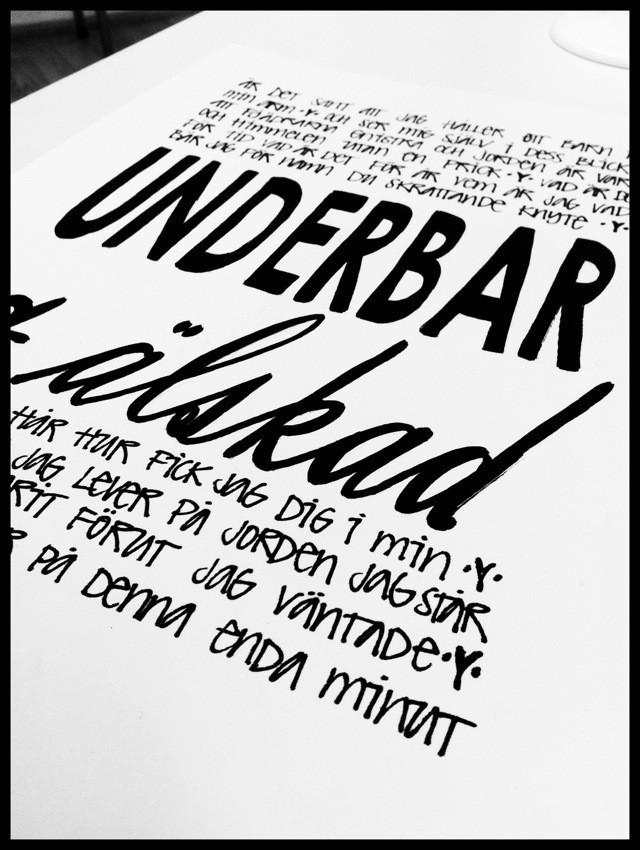 ÄR DET SANT ATT JAG HÅLLER ETT BARN I
MIN ARM ·Y· OCH SER MIG SJÄLV I DESS BLICK
ATT FJÄRDARNA GNISTRA OCH JORDEN ÄR VAR
OCH HIMMELEN UTAN EN PRICK ·Y· VAD ÄR DE
FÖR TID VAD ÄR DET FÖR ÅR VEM ÄR JAG VAD
BÄR JAG FÖR NAMN DU SKRATTANDE KNYTE ·Y·
UNDERBAR
älskad
HÅR HUR FICK JAG DIG I min ·Y·
JAG LEVER PÅ JORDEN JAG STÅR
RIT FÖRUT JAG VÄNTADE ·Y·
PÅ DENNA ENDA MINUT